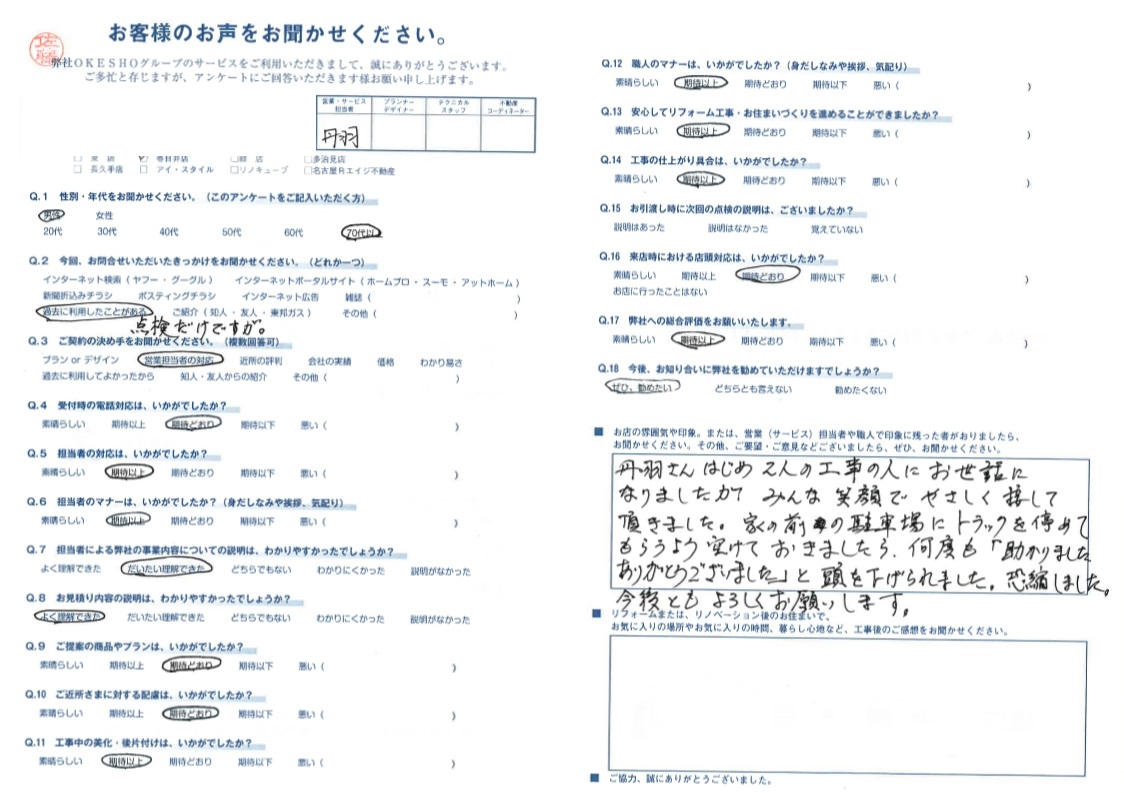 お客様のお声をお聞かせください。
佐藤
弊社ＯＫＥＳＨＯグループのサービスをご利用いただきまして、誠にありがとうございます。
ご多忙と存じますが、アンケートにご回答いただきます様お願い申し上げます。
営業・サービス担当者 プランナーデザイナー テクニカルスタッフ 不動産コーディネーター
丹羽
□ 本店 ☑ 春日井店 □ 店 □多治見店
□ 長久手店 □ アイ・スタイル □リノキューブ □名古屋Ｒエイジ不動産
Q.1 性別・年代をお聞かせください。（このアンケートをご記入いただく方）
男性 女性
20代 30代 40代 50代 60代 70代以
Q.2 今回、お問合せいただいたきっかけをお聞かせください。（どれか一つ）
インターネット検索（ ヤフー ・ グーグル ） インターネットポータルサイト（ ホームプロ ・ スーモ ・ アットホーム ）
新聞折込みチラシ ポスティングチラシ インターネット広告 雑誌（ ）
過去に利用したことがある ご紹介（ 知人 ・ 友人 ・ 東邦ガス ） その他（ ）
点検だけですが。
Q.3 ご契約の決め手をお聞かせください。（複数回答可）
プラン or デザイン 営業担当者の対応 近所の評判 会社の実績 価格 わかり易さ
過去に利用してよかったから 知人・友人からの紹介 その他（ ）
Q.4 受付時の電話対応は、いかがでしたか？
素晴らしい 期待以上 期待どおり 期待以下 悪い（ ）
Q.5 担当者の対応は、いかがでしたか？
素晴らしい 期待以上 期待どおり 期待以下 悪い（ ）
Q.6 担当者のマナーは、いかがでしたか？（身だしなみや挨拶、気配り）
素晴らしい 期待以上 期待どおり 期待以下 悪い（ ）
Q.7 担当者による弊社の事業内容についての説明は、わかりやすかったでしょうか？
よく理解できた だいたい理解できた どちらでもない わかりにくかった 説明がなかった
Q.8 お見積り内容の説明は、わかりやすかったでしょうか？
よく理解できた だいたい理解できた どちらでもない わかりにくかった 説明がなかった
Q.9 ご提案の商品やプランは、いかがでしたか？
素晴らしい 期待以上 期待どおり 期待以下 悪い（ ）
Q.10 ご近所さまに対する配慮は、いかがでしたか？
素晴らしい 期待以上 期待どおり 期待以下 悪い（ ）
Q.11 工事中の美化・後片付けは、いかがでしたか？
素晴らしい 期待以上 期待どおり 期待以下 悪い（ ）
Q.12 職人のマナーは、いかがでしたか？（身だしなみや挨拶、気配り）
素晴らしい 期待以上 期待どおり 期待以下 悪い（ ）
Q.13 安心してリフォーム工事・お住まいづくりを進めることができましたか？
素晴らしい 期待以上 期待どおり 期待以下 悪い（ ）
Q.14 工事の仕上がり具合は、いかがでしたか？
素晴らしい 期待以上 期待どおり 期待以下 悪い（ ）
Q.15 お引渡し時に次回の点検の説明は、ございましたか？
説明はあった 説明はなかった 覚えていない
Q.16 来店時における店頭対応は、いかがでしたか？
素晴らしい 期待以上 期待どおり 期待以下 悪い（ ）
お店に行ったことはない
Q.17 弊社への総合評価をお願いいたします。
素晴らしい 期待以上 期待どおり 期待以下 悪い（ ）
Q.18 今後、お知り合いに弊社を勧めていただけますでしょうか？
ぜひ、勧めたい どちらとも言えない 勧めたくない
■ お店の雰囲気や印象。または、営業（サービス）担当者や職人で印象に残った者がおりましたら、
お聞かせください。その他、ご要望・ご意見などございましたら、ぜひ、お聞かせください。
丹羽さんはじめ 2人の工事の人に お世話に
なりましたが みんな 笑顔で やさしく 接して
頂きました。家の前の駐車場に トラックを停めて
もらうよう 空けて おきましたら、何度も「助かりました
ありがとうございました」と 頭を下げられました。恐縮しました。
今後とも よろしくお願いします。
■ リフォームまたは、リノベーション後のお住まいで、
お気に入りの場所やお気に入りの時間、暮らし心地など、工事後のご感想をお聞かせください。
■ ご協力、誠にありがとうございました。